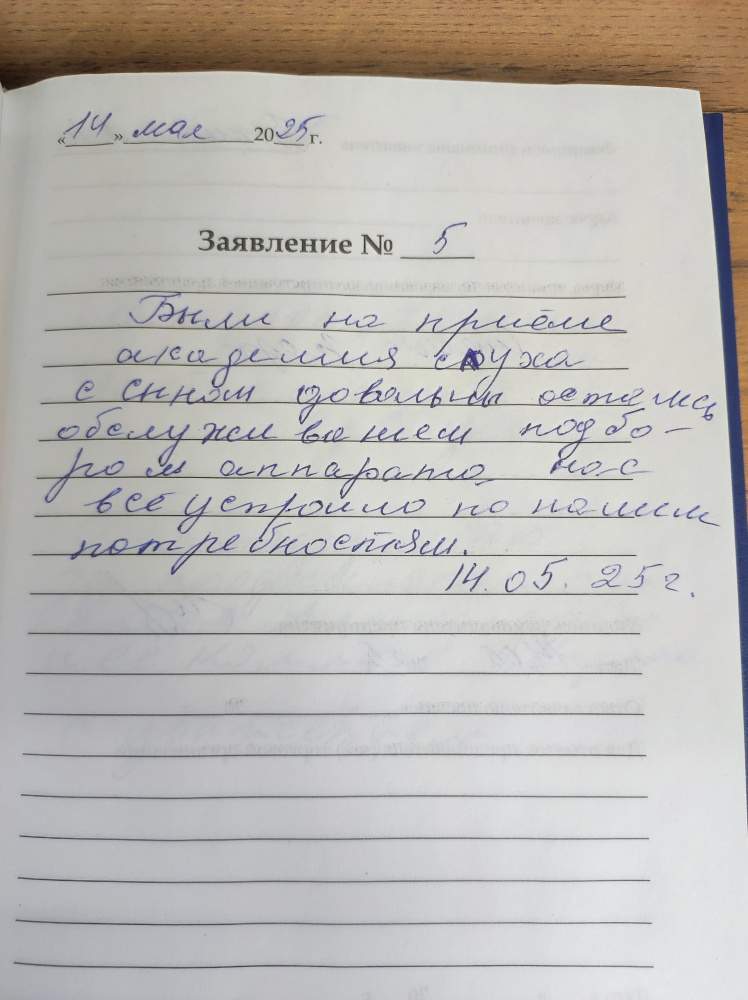 «14» мая 2025 г.
Заявление № 5
Были на приёме
академия слуха
с сыном довольны остались
обслуживанием подбо-
ром аппарата, нас
всё устроило по нашим
потребностям.
14.05.25г.